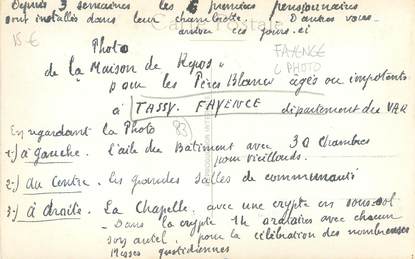 Depuis 3 semaines les 6 premiers pensionnaires
sont installés dans leur chambrette. D'autres vous
arriver ces jours-ci
15 €
Carte Postale
Photo
FAYENCE
C PHOTO
de la Maison de Repos "
pour les Pères Blancs âgés ou impotents
à TASSY. FAYENCE département du VAR
En regardant la Photo (83)
1-) à gauche. l'aile du Bâtiment avec 30 Chambres
pour vieillards.
2-) Au Centre. les grandes Salles de communauté
3-) à droite. La Chapelle, avec une crypte en sous-sol
- Dans la crypte avec chacun
son autel, pour la célébration des nombreuses
Messes quotidiennes